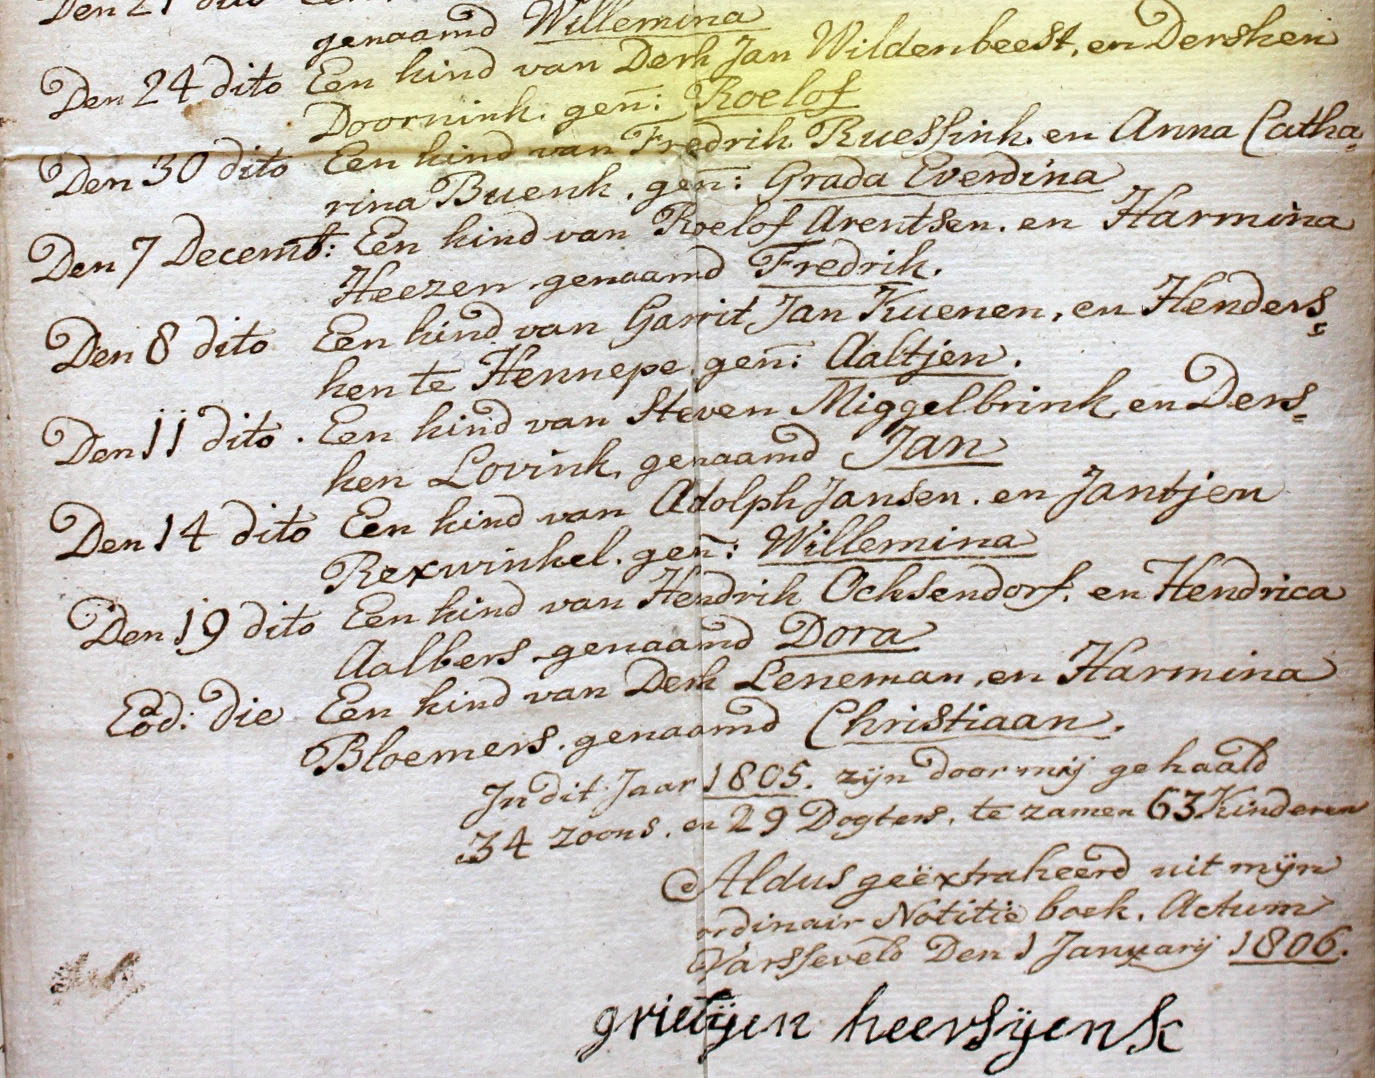 Den 21 dito
genaamd Willemina
Den 24 dito Een kind van Derk Jan Wildenbeest, en Dersken
Doornink. gen̄: Roelof
Den 30 dito Een kind van Fredrik Ruessink. en Anna Catha=
rina Buenk. gen̄: Grada Everdina
Den 7 Decemb: Een kind van Roelof Arentsen. en Harmina
Heezen. genaamd Fredrik.
Den 8 dito Een kind van Garrit Jan Kuenen, en Henders=
ken te Hennepe. gen̄: Aaltjen.
Den 11 dito. Een kind van Steven Miggelbrink en Ders=
ken Lovink, genaamd Jan
Den 14 dito Een kind van Adolph Jansen. en Jantjen
Rexwinkel. gen̄: Willemina
Den 19 dito Een kind van Hendrik Ochsendorf. en Hendrica
Aalbers. genaamd Dora
Eod: die Een kind van Derk Leneman, en Harmina
Bloemers. genaamd Christiaan.
In dit Jaar 1805. zijn door mij gehaald
34 zoons, en 29 Dogters, te zamen 63 Kinderen
Aldus geëxtraheerd uit mijn
ordinair Notitie boek. Actum
Varsseveld Den 1 January 1806.
grietijen heersijensk